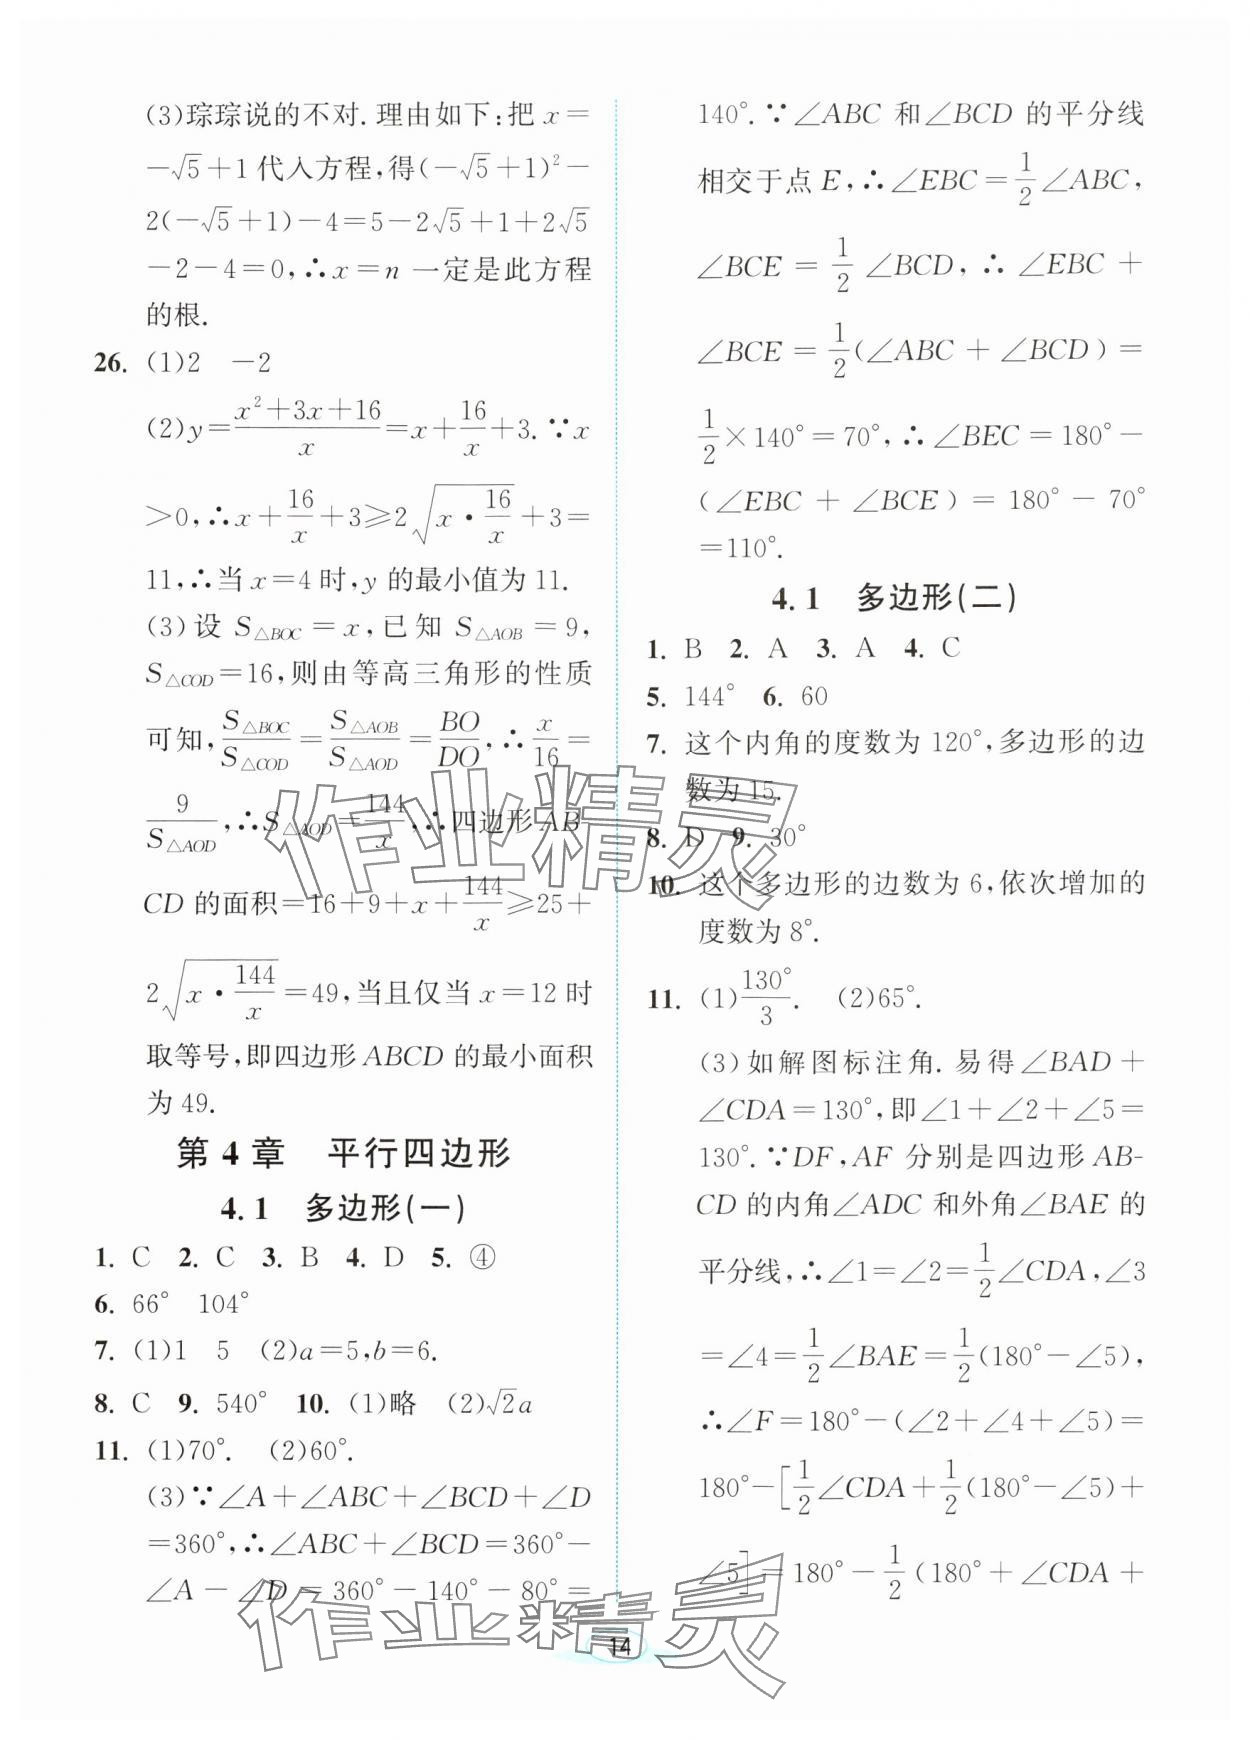 (3)琮琮说的不对. 理由如下:把 x=
-√5+1代入方程,得(-√5+1)²-
2(-√5+1)-4=5-2√5+1+2√5
-2-4=0,∴x=n 一定是此方程
的根.
26. (1)2 -2
(2)y=(x²+3x+16)/x=x+16/x+3. ∵x
>0,∴x+16/x+3≥2√(x·16/x)+3=
11,∴当 x=4 时,y 的最小值为 11.
(3)设 S△BOC=x,已知 S△AOB=9,
S△COD=16,则由等高三角形的性质
可知,S△BOC/S△COD=S△AOB/S△AOD=BO/DO,∴x/16=
9/S△AOD,∴S△AOD=144/x,∴四边形 AB-
CD 的面积=16+9+x+144/x≥25+
2√(x·144/x)=49,当且仅当 x=12 时
取等号,即四边形 ABCD 的最小面积
为 49.
第 4 章 平行四边形
4.1 多边形(一)
1. C 2. C 3. B 4. D 5. ④
6. 66° 104°
7. (1)1 5 (2)a=5,b=6.
8. C 9. 540° 10. (1)略 (2)√2a
11. (1)70°. (2)60°.
(3)∵∠A+∠ABC+∠BCD+∠D
=360°,∴∠ABC+∠BCD=360°-
∠A-∠D=360°-140°-80°=
140°. ∵∠ABC 和∠BCD 的平分线
相交于点 E,∴∠EBC=1/2∠ABC,
∠BCE=1/2∠BCD,∴∠EBC+
∠BCE=1/2(∠ABC+∠BCD)=
1/2×140°=70°,∴∠BEC=180°-
(∠EBC+∠BCE)=180°-70°
=110°.
4.1 多边形(二)
1. B 2. A 3. A 4. C
5. 144° 6. 60
7. 这个内角的度数为 120°,多边形的边
数为 15.
8. D 9. 30°
10. 这个多边形的边数为 6,依次增加的
度数为 8°.
11. (1)130°/3. (2)65°.
(3)如解图标注角. 易得∠BAD+
∠CDA=130°,即∠1+∠2+∠5=
130°. ∵DF,AF 分别是四边形 AB-
CD 的内角∠ADC 和外角∠BAE 的
平分线,∴∠1=∠2=1/2∠CDA,∠3
=∠4=1/2∠BAE=1/2(180°-∠5),
∴∠F=180°-(∠2+∠4+∠5)=
180°-[1/2∠CDA+1/2(180°-∠5)+
∠5]=180°-1/2(180°+∠CDA+
作业精灵
作业精灵
14